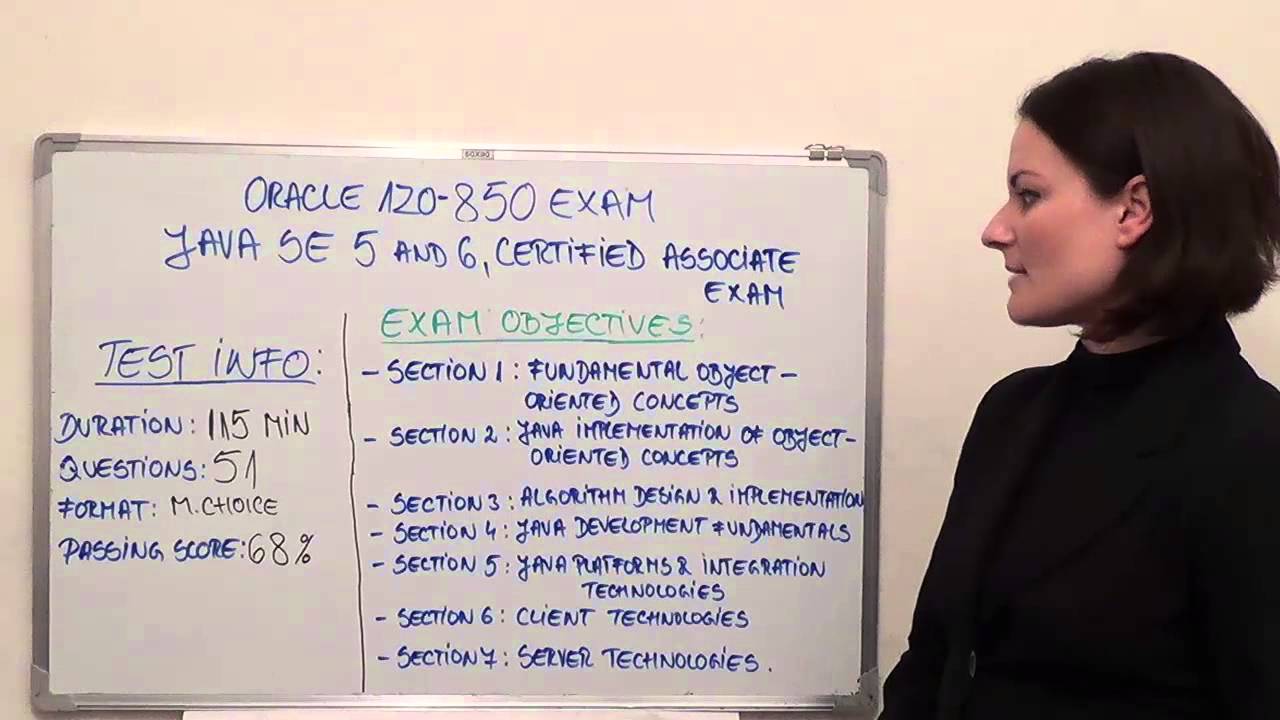 60X90
ORACLE 1Z0-850 EXAM
JAVA SE 5 AND 6, CERTIFIED ASSOCIATE
EXAM
TEST INFO:
DURATION: 115 MIN
QUESTIONS: 51
FORMAT: M. CHOICE
PASSING SCORE: 68%
EXAM OBJECTIVES:
- SECTION 1: FUNDAMENTAL OBJECT-
ORIENTED CONCEPTS
- SECTION 2: JAVA IMPLEMENTATION OF OBJECT-
ORIENTED CONCEPTS
- SECTION 3: ALGORITHM DESIGN & IMPLEMENTATION
- SECTION 4: JAVA DEVELOPMENT FUNDAMENTALS
- SECTION 5: JAVA PLATFORMS & INTEGRATION
TECHNOLOGIES
- SECTION 6: CLIENT TECHNOLOGIES
- SECTION 7: SERVER TECHNOLOGIES.